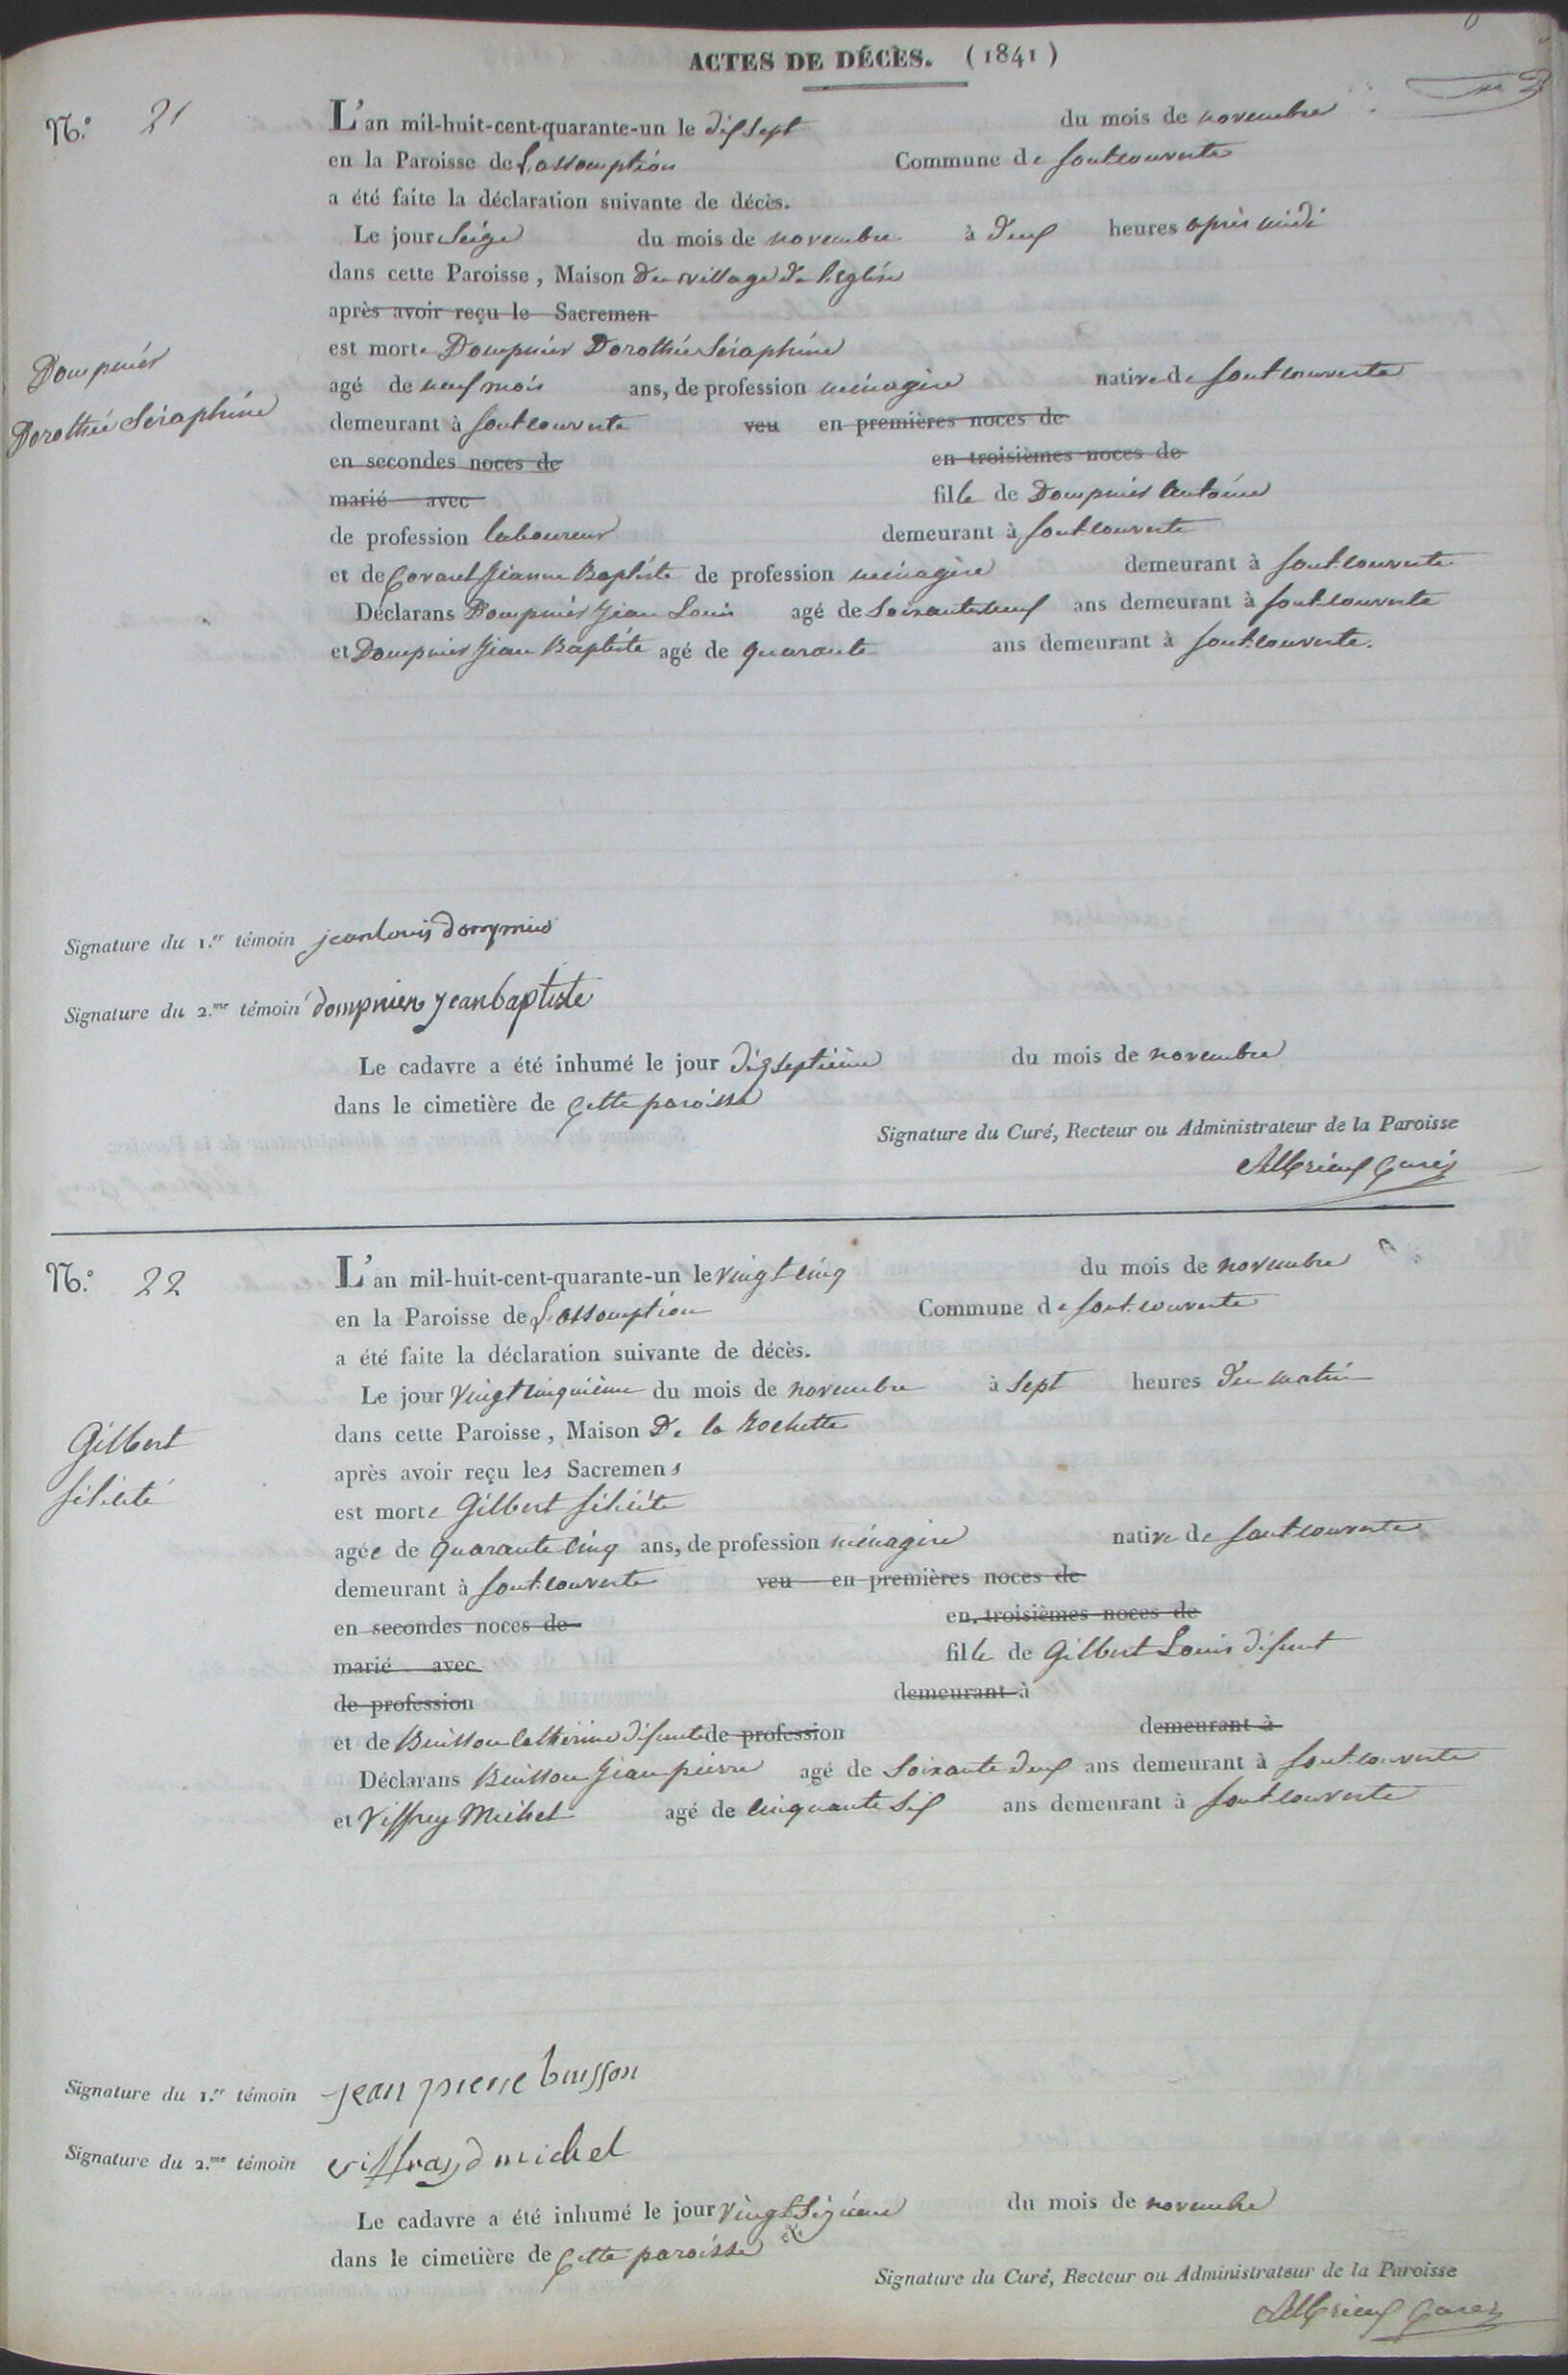 ACTES DE DÉCÈS. ( 1841 )
N.º 21
L'an mil-huit-cent-quarante-un le dix sept du mois de novembre
en la Paroisse de L'assomption Commune de fontcouverte
a été faite la déclaration suivante de décès.
Le jour seize du mois de novembre à deux heures après midi
dans cette Paroisse, Maison du village de l'église
après avoir reçu le Sacremen
est morte Dompnier Dorothée Séraphine
Dompnier
Dorothée Séraphine
agé de neuf mois ans, de profession ménagère native de fontcouverte
demeurant à fontcouverte veu en premières noces de
en secondes noces de en troisièmes noces de
marié avec fille de Dompnier Antoine
de profession laboureur demeurant à fontcouverte
et de Jeanne Baptiste de profession ménagère demeurant à fontcouverte
Déclarans Dompnier Jean Louis agé de ans demeurant à fontcouverte
et Dompnier Jean Baptiste agé de quarante ans demeurant à fontcouverte.
Signature du 1.er témoin jean louis dompnier
Signature du 2.me témoin dompnier jean baptiste
Le cadavre a été inhumé le jour dixseptième du mois de novembre
dans le cimetière de cette paroisse
Signature du Curé, Recteur ou Administrateur de la Paroisse
Curé
N.º 22
L'an mil-huit-cent-quarante-un le vingt cinq du mois de novembre
en la Paroisse de L'assomption Commune de fontcouverte
a été faite la déclaration suivante de décès.
Le jour vingt cinquième du mois de novembre à sept heures du matin
dans cette Paroisse, Maison De la Rochette
Gilbert
félicité
après avoir reçu les Sacremens
est morte Gilbert félicité
agée de quarante cinq ans, de profession ménagère native de fontcouverte
demeurant à fontcouverte veu en premières noces de
en secondes noces de en troisièmes noces de
marié avec fille de Gilbert Louis défunt
de profession demeurant à
et de Buisson Catherine défunte de profession demeurant à
Déclarans Buisson Jean pierre agé de soixante deux ans demeurant à fontcouverte
et Viffrey Michel agé de cinquante six ans demeurant à fontcouverte
Signature du 1.er témoin jean pierre buisson
Signature du 2.me témoin michel
Le cadavre a été inhumé le jour vingt sixième du mois de novembre
dans le cimetière de cette paroisse
Signature du Curé, Recteur ou Administrateur de la Paroisse
Curé